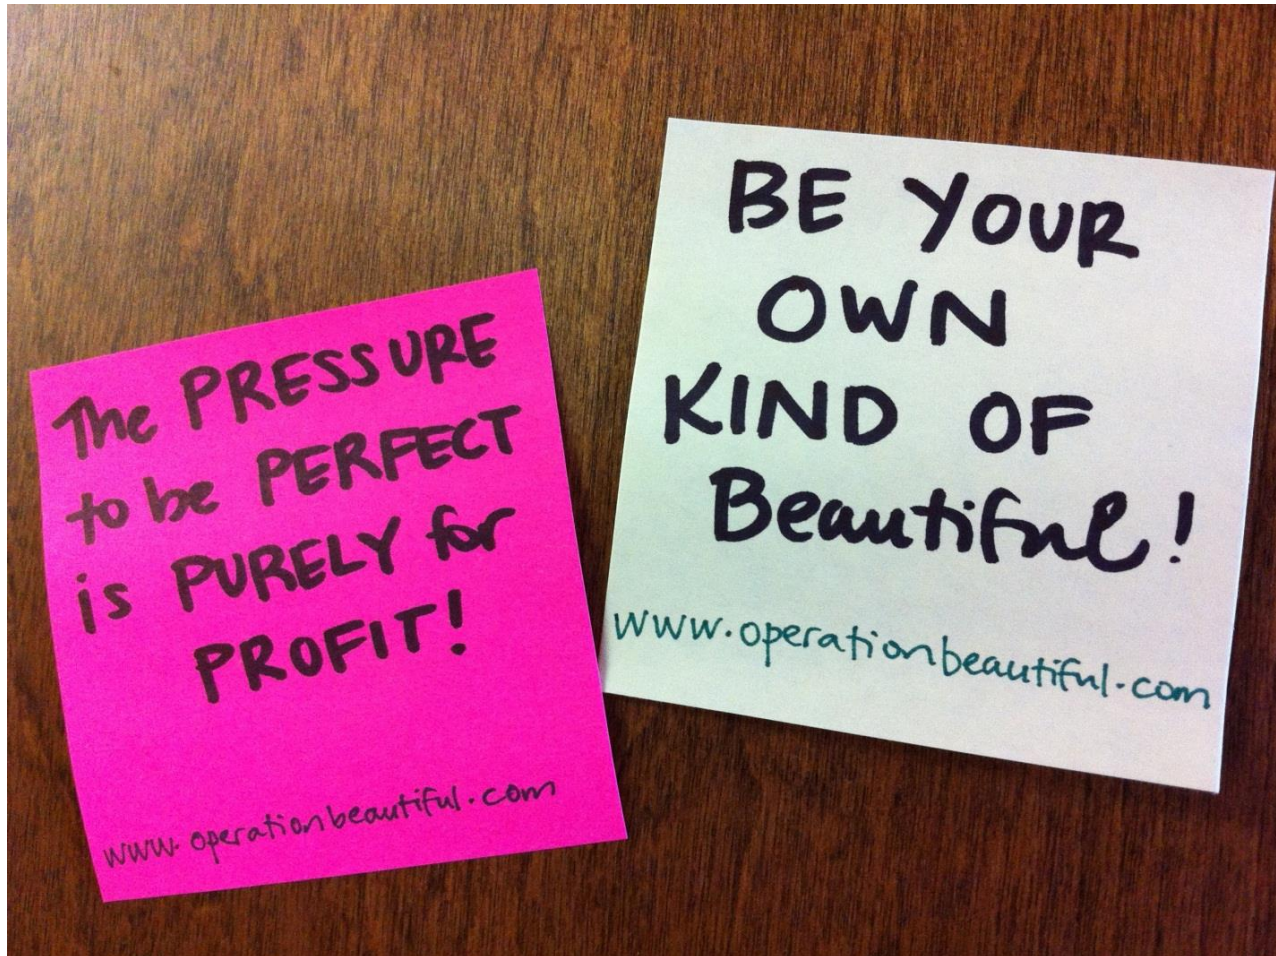 The PRESSURE
to be PERFECT
is PURELY for
PROFIT!
www.operationbeautiful.com
BE YOUR
OWN
KIND OF
Beautiful!
www.operationbeautiful.com